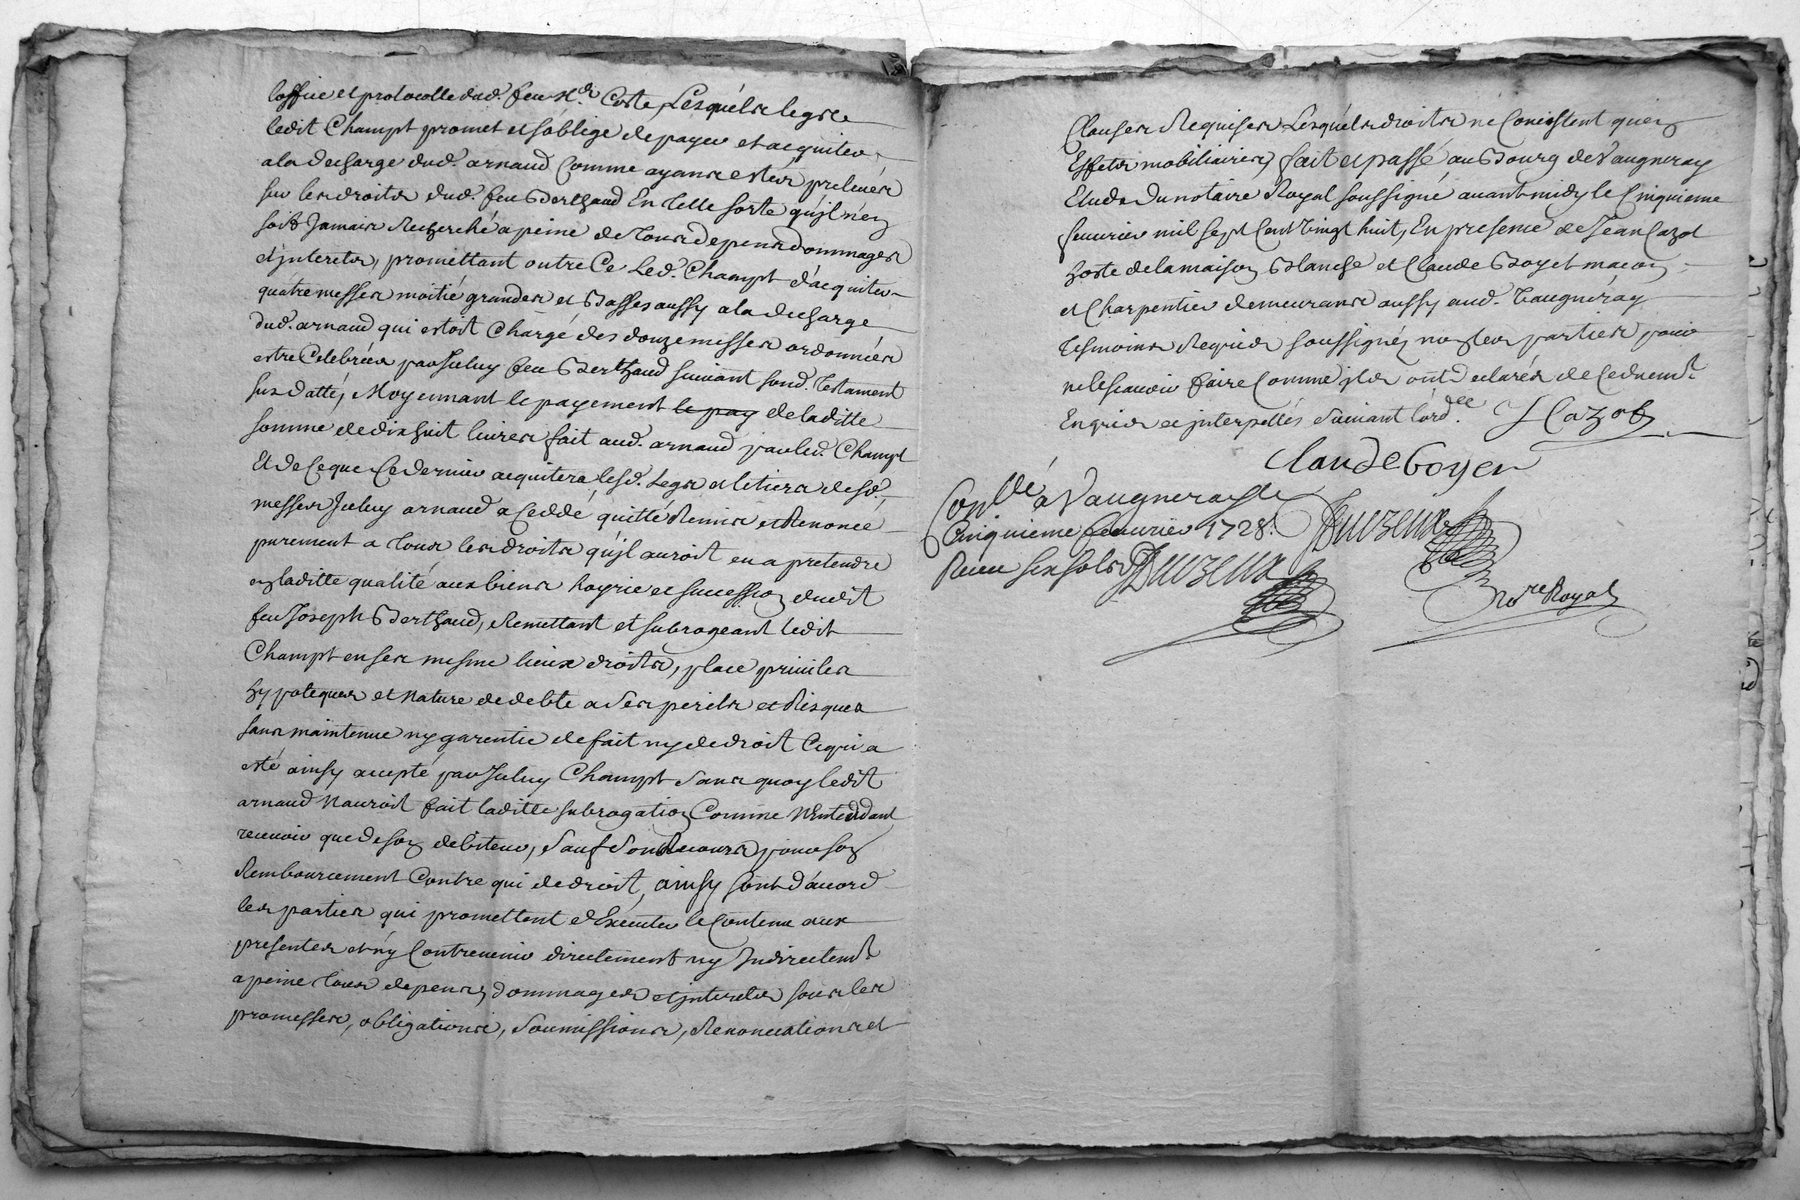 loffice et protocolle dud. feu Me Coste, Lesquels legs
ledit Champt promet et soblige de payer et acquiter
a la decharge dud. arnaud Comme ayants estés prelevés
sur les droits dud. feu Berthaud En telle sorte qu'jl n'en
soit Jamais Recherché a peine de tous depens dommages
et jnterets, promettant outre Ce Led. Champt d'acquiter
quatre messes moitié grandes et Basses aussy a la decharge
dud. arnaud qui estoit Chargé des douze messes ordonnées
estre Celebrées par Jceluy feu Berthaud suivant sond. testament
sus datté, Moyennant le payement le pay de laditte
somme de dix huit livres fait aud. arnaud par led. Champt
Et de Ce que Ce dernier acquitera lesd. Legs et le tiers desd.
messes Jceluy arnaud a Ceddé quitté Remis et Renoncé
purement a tous les droits qu'jl auroit eu a pretendre
en laditte qualité aux biens hoyrie et succession dudit
feu Joseph Berthaud, Remettant et subrogeant ledit
Champt en ses mesme lieux droits, place privileg
hypoteques et Nature de debte a Ses perils et Risques
sans maintenue ny garentie de fait ny de droit Ce qui a
esté ainsy accepté par Jceluy Champt Sans quoy ledit
arnaud Nauroit fait laditte subrogation Comme N'entendant
recevoir que de son debiteur, Sauf Son Recours pour son
Remboursement Contre qui de droit, ainsy sont d'acord
les parties qui promettent d'Executer le Contenu aux
presentes et n'y Contrevenir directement ny Indirectemt
a peine tous depens, dommages et jnterets sous les
promesses, obligations, Soumissions, Renonciations et
Clauses Requises Lesquels droits ne Consistent qu'en
Effets mobiliaires, fait et passé au Bourg de Vaugneray
Etude Du notaire Royal soussigné avant midy le Cinquieme
fevvrier mil sept Cent vingt huit, En presence de Jean Cazot
hoste de la maison Blanche et Claude Boyet maçon
et Charpentier demeurants aussy aud. Vaugneray
tesmoins Requis soussignés non les parties pour
ne le sçavoir faire Comme jls ont declarés de Ce duemt
Enquis et jnterpellés Suivant l'ordce. J Cazot
Claude boyer
Conllé a Vaugneray le
Cinquieme fevvrier 1728.
Receu six sols
nore Royal